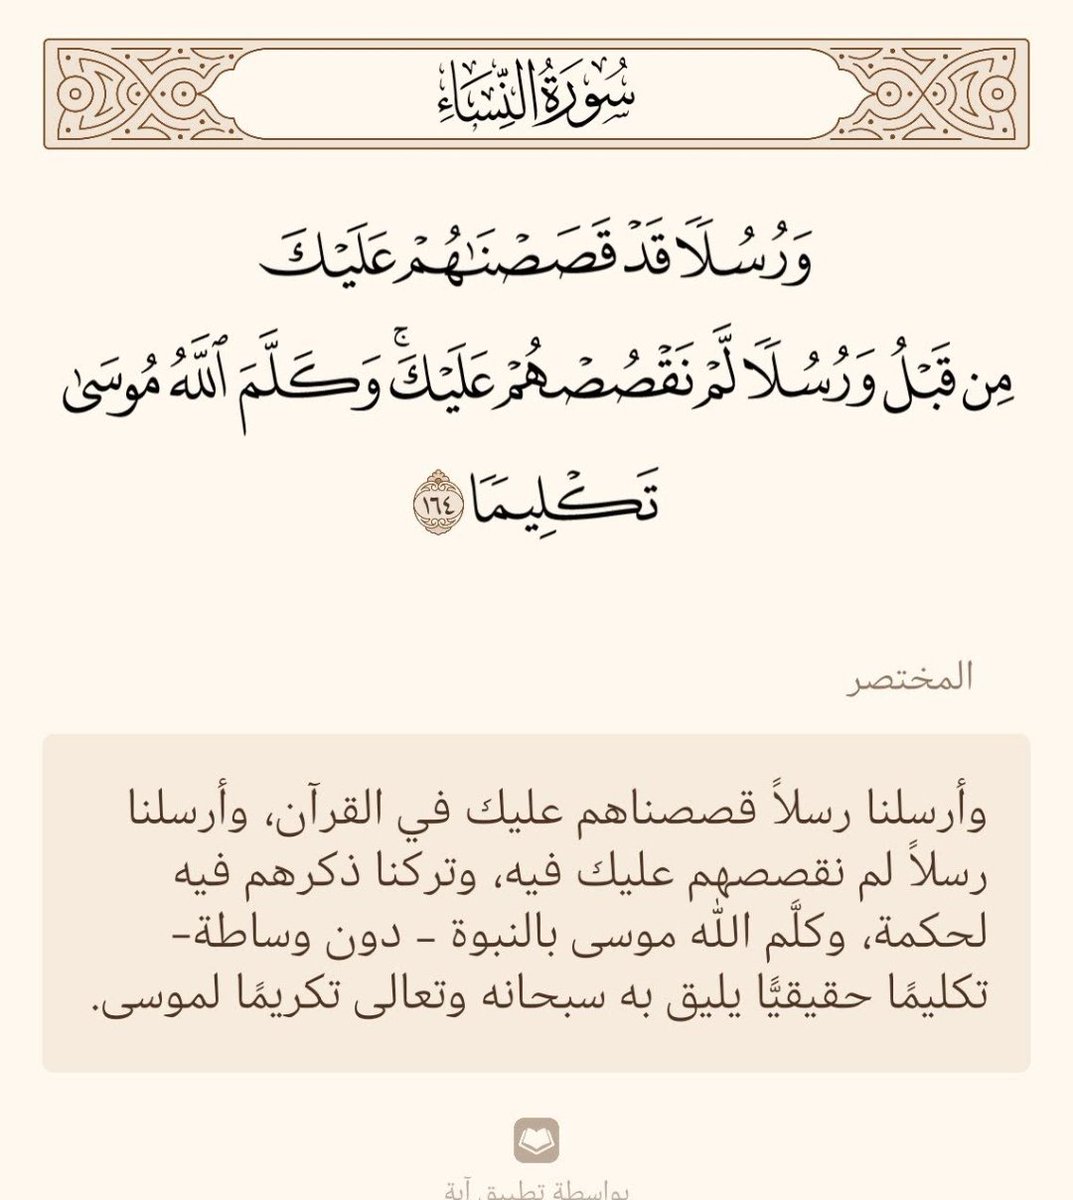 سُورَةُ النِّسَاءِ
وَرُسُلًا قَدۡ قَصَصۡنَٰهُمۡ عَلَيۡكَ
مِن قَبۡلُ وَرُسُلًا لَّمۡ نَقۡصُصۡهُمۡ عَلَيۡكَۚ وَكَلَّمَ ٱللَّهُ مُوسَىٰ
تَكۡلِيمًا ١٦٤
المختصر
وأرسلنا رسلاً قصصناهم عليك في القرآن، وأرسلنا
رسلاً لم نقصصهم عليك فيه، وتركنا ذكرهم فيه
لحكمة، وكلَّم الله موسى بالنبوة - دون وساطة-
تكليمًا حقيقيًّا يليق به سبحانه وتعالى تكريمًا لموسى.
بواسطة تطبيق آية